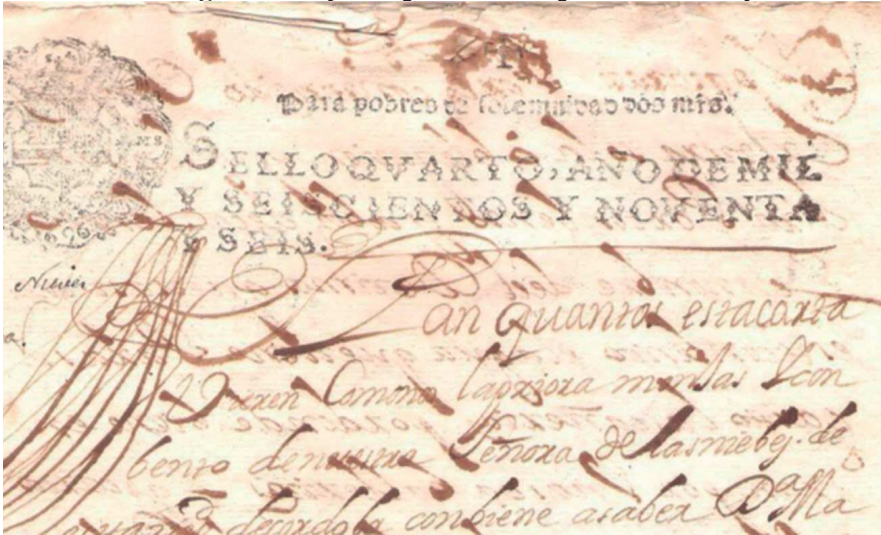 Para pobres de solemnidad dos mrs.
SELLO QVARTO, AÑO DE MIL
Y SEISCIENTOS Y NOVENTA
Y SEIS.
an quantos esta carta
Vieren Como no la priora monjas
bento de nuestra Señora de las de
de cordoba conbiene asaber Dª Ma